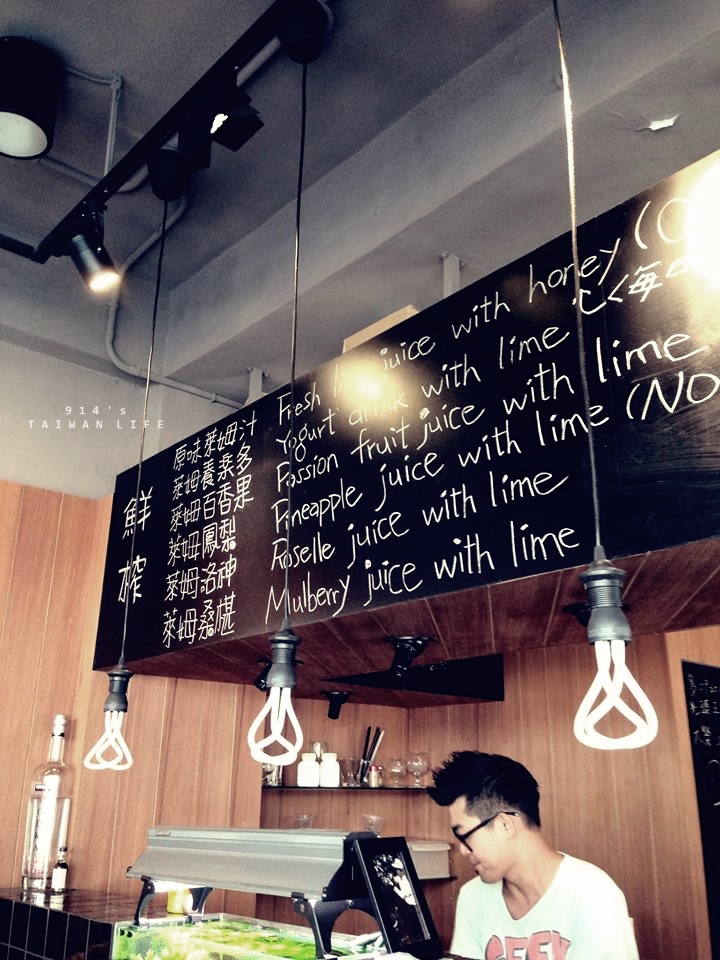 914's
TAIWAN LIFE
鮮榨
原味萊姆汁 Fresh juice with honey
萊姆養樂多 Yogurt drink with lime 心
萊姆百香果 Passion fruit juice with lime
萊姆鳳梨 Pineapple juice with lime (NO
萊姆洛神 Roselle juice with lime
萊姆桑椹 Mulberry juice with lime
GEEK